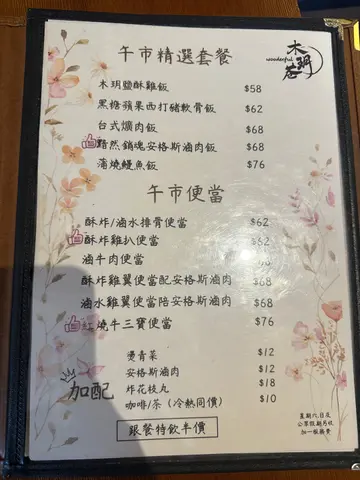 午市精選套餐
木玥
wonderful
木玥鹽酥雞飯 $58
黑糖蘋果西打豬軟骨飯 $62
台式爌肉飯 $68
黯然銷魂安格斯滷肉飯 $68
蒲燒鰻魚飯 $76
午市便當
酥炸/滷水排骨便當 $62
酥炸雞扒便當 $62
滷牛肉便當
酥炸雞翼便當配安格斯滷肉 $68
滷水雞翼便當陪安格斯滷肉 $68
紅燒牛三寶便當 $76
加配
燙青菜 $12
安格斯滷肉 $12
炸花枝丸 $18
咖啡/茶（冷熱同價） $10
跟餐特飲半價
星期六,日及
公眾假期另收
加一服務費